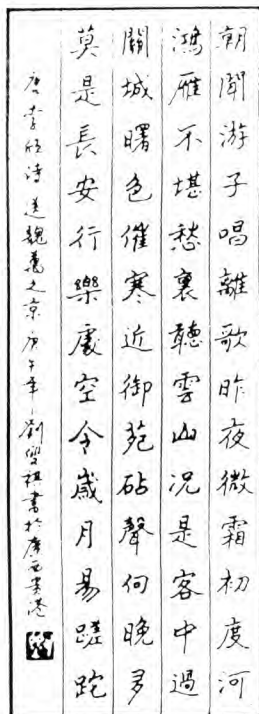 朝聞游子唱離歌昨夜微霜初度河
鴻雁不堪愁裏聽雲山况是客中過
關城曙色催寒近御苑砧聲向晚多
莫是長安行樂處空令歲月易蹉跎
唐李頎詩送魏萬之京庚午年劉雙祺書於廣西貴港